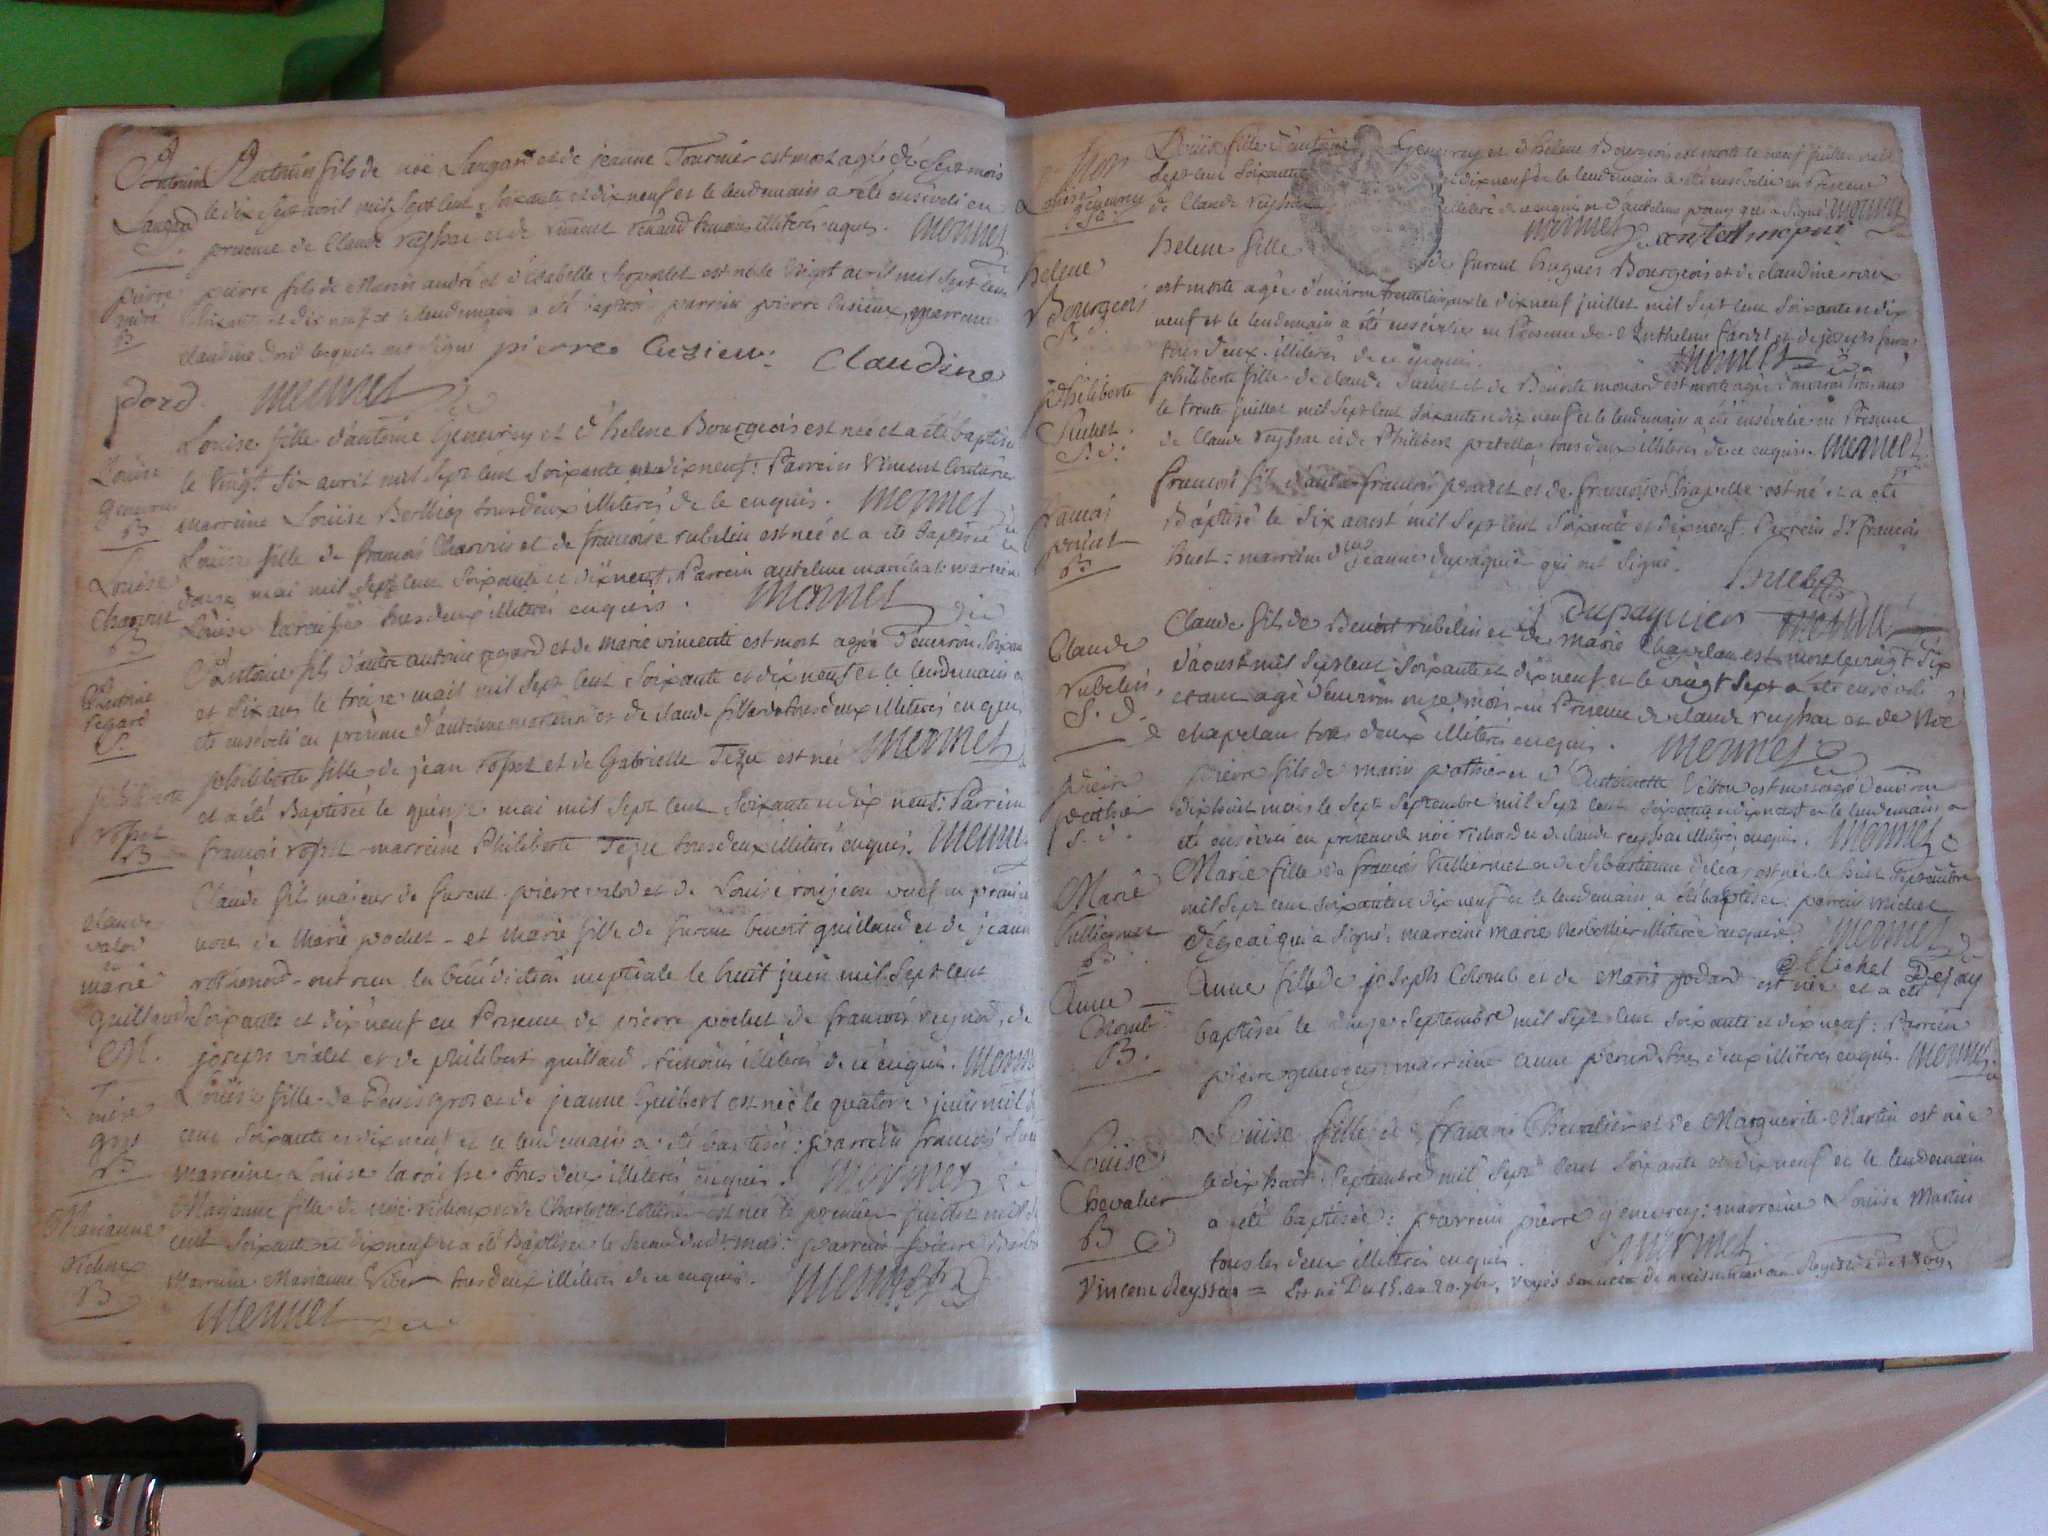 Antoine
Langard
S.
Antoine fils de noë Langard et de jeanne Tournier est mort agé de sept mois
le dix sept avril mil sept cent soixante et dix neuf et le lendemain a été enséveli en
présence de Claude reyssac et de vincent renaud temoins illiterés enquis. mermet
pierre
andré
B
pierre fils de Marin andré et d'isabelle est né le vingt avril mil sept cent
soixante et dix neuf et le lendemain a été baptisé parrein pierre Cusieux, marreine
claudine dord lesquels ont signé pierre Cusieu: Claudine
dord. mermet
Louise
genevrey
B
Louise fille d'antoine Genevrey et d'helene Bourgeois est née et a été baptisé
le vingt six avril mil sept cent soixante et dix neuf: Parrein Vincent
marreine Louise Berlliog tous deux illiterés de ce enquis. mermet
Louise
Charvin
B
Louise fille de françois Charvin et de françoise rubelin est née et a été baptisée le
douze mai mil sept cent soixante et dix neuf, Parrein antelme marreine
Louise laraisse tous deux illiterés enquis. mermet
Antoine
regard
S.
Antoine fils d'autre antoine regard et de marie vincente est mort agée d'environ soixante
et six ans le treize mai mil sept cent soixante et dix neuf et le lendemain a
été enséveli en présence d'antelme et de claude tous deux illiterés enquis
mermet
philiberte
rosset
B
philiberte fille de jean rosset et de Gabrielle Tezu est née
et a été Baptisée le quinze mai mil sept cent soixante et dix neuf: Parrein
françois rosset marreine Philiberte Tezu tous deux illiterés enquis. mermet
claude
valod
et
marie
guilland
M.
Claude fils majeur de furent pierre valod et de Louise roujeon veuf en premieres
noces de Marie pochet - et marie fille de furent benoit guilland et de jeanne
ont reçu la bénédiction nuptiale le huit juin mil sept cent
soixante et dix neuf en Présence de pierre pochet de françois reynod, de
joseph violet et de philibert guilland temoins illiterés de ce enquis. mermet
gros
B
Louise fille de Denis gros et de jeanne Guibert est née le quatorze juin mil sept
cent soixante et dix neuf et le lendemain a été baptisée: parrein françois
marreine Louise laraisse tous deux illiterés enquis. mermet
Marianne
richoux
B
Marianne fille de noë richoux et de Charlotte est née le premier juillet mil sept
cent soixante et dix neuf et a été Baptisée le second dudt mois: parrein pierre
Marreine Marianne Viber tous deux illiterés de ce enquis. mermet
mermet
Louise
genevrey
Sd.
Louise fille d'antoine Genevrey et d'hélène Bourgeois est morte le neuf juillet mil
sept cent soixante et dix neuf et le lendemain a été ensévelie en Présence
de Claude reyssac illiteré de ce enquis et d'antelme qui a signé mermet
mermet
helene
Bourgeois
S.
helene fille de furent hugues Bourgeois et de claudine roux
est morte agée d'environ le dix neuf juillet mil sept cent soixante et dix
neuf et le lendemain a été ensévelie en Présence de Anthelme et de joseph
tous deux illiterés de ce enquis. mermet
philiberte
Suchet
S.d.
philiberte fille de claude Suchet et de Benoite monard est morte agée d'environ trois ans
le trente juillet mil sept cent soixante et dix neuf et le lendemain a été ensévelie en Présence
de Claude reyssac et de Philibert tous deux illiterés de ce enquis. mermet
françois
B
françois fils d'autre françois et de françoise est né et a été
Baptisé le dix aoust mil sept cent soixante et dix neuf. Parrein Sr. françois
huet: marreine dlle jeanne dupaquier qui ont signé.
huet
j dupaquier mermet
Claude
rubelin
S. d.
Claude fils de Benoit rubelin et de marie chapelan est mort le vingt six
d'aoust mil sept cent soixante et dix neuf et le vingt sept a été enséveli
etant agé d'environ onze mois en Présence de claude reyssac et de Noë
chapelan tous deux illiterés enquis. mermet
pierre
pothier
S. d.
pierre fils de marin pothier et d'Antoinette est mort agé d'environ
dix huit mois le sept septembre mil sept cent soixante et dix neuf et le lendemain a
été enséveli en présence de noë richard et de claude reyssac illiterés enquis. mermet
Marie
Vulliermet
B
Marie fille de françois Vulliermet et de Sébastienne dejeay est née le huit septembre
mil sept cent soixante et dix neuf et le lendemain a été baptisée: parrein michel
dejeai qui a signé: marreine marie illiterée enquise. mermet
Michel Dejay
Anne
Colomb
B.
Anne fille de joseph Colomb et de Marie godard est née et a été
baptisée le onze septembre mil sept cent soixante et dix neuf: Parrein
pierre genevrey: marreine anne tous deux illiterés enquis. mermet
Louise
Chevalier
B
Louise fille de françois Chevalier et de Marguerite Martin est née
le dix huit septembre mil sept cent soixante et dix neuf et le lendemain
a été baptisée: parrein pierre genevrey: marreine Louise Martin
tous les deux illiterés enquis. mermet
Vincent Reyssac = Est né Du 15. au 20. 7bre, voyés son acte de naissance au Registre de